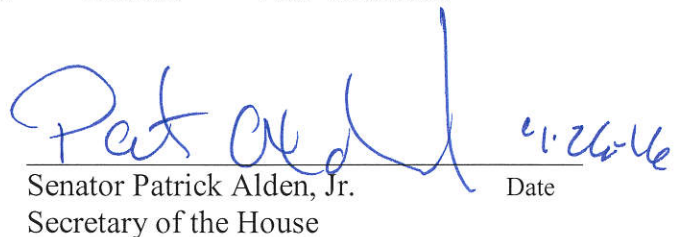 Pat Alden 4-26-16
Senator Patrick Alden, Jr. Date
Secretary of the House